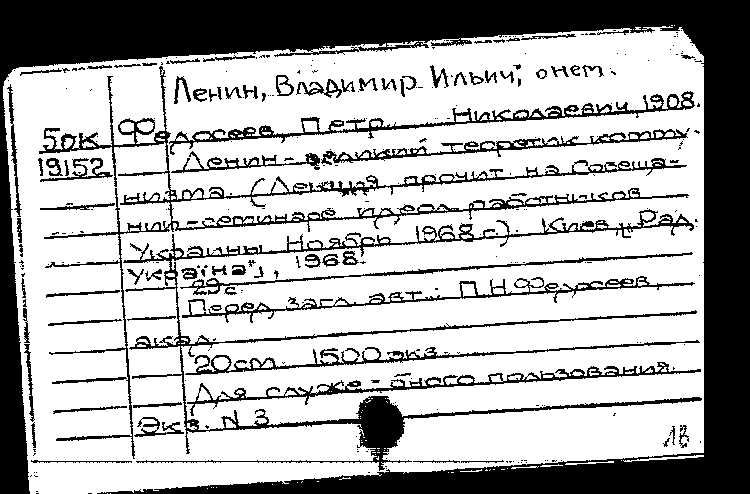 Ленин, Владимир Ильич; о нем.
50К Федосеев, Петр Николаевич, 1908.
19152 Ленин - великий теоретик комму-
низма. (Лекция, прочит. на Совеща-
нии-семинаре идеол. работников
Украины. Ноябрь 1968 г.). Киев, „Рад.
Україна", 1968.
29 с.
Перед загл. авт.: П.Н.Федосеев,
акад.
20 см. 1500 экз.
Для служе-бного пользования.
Экз. N 3
1В